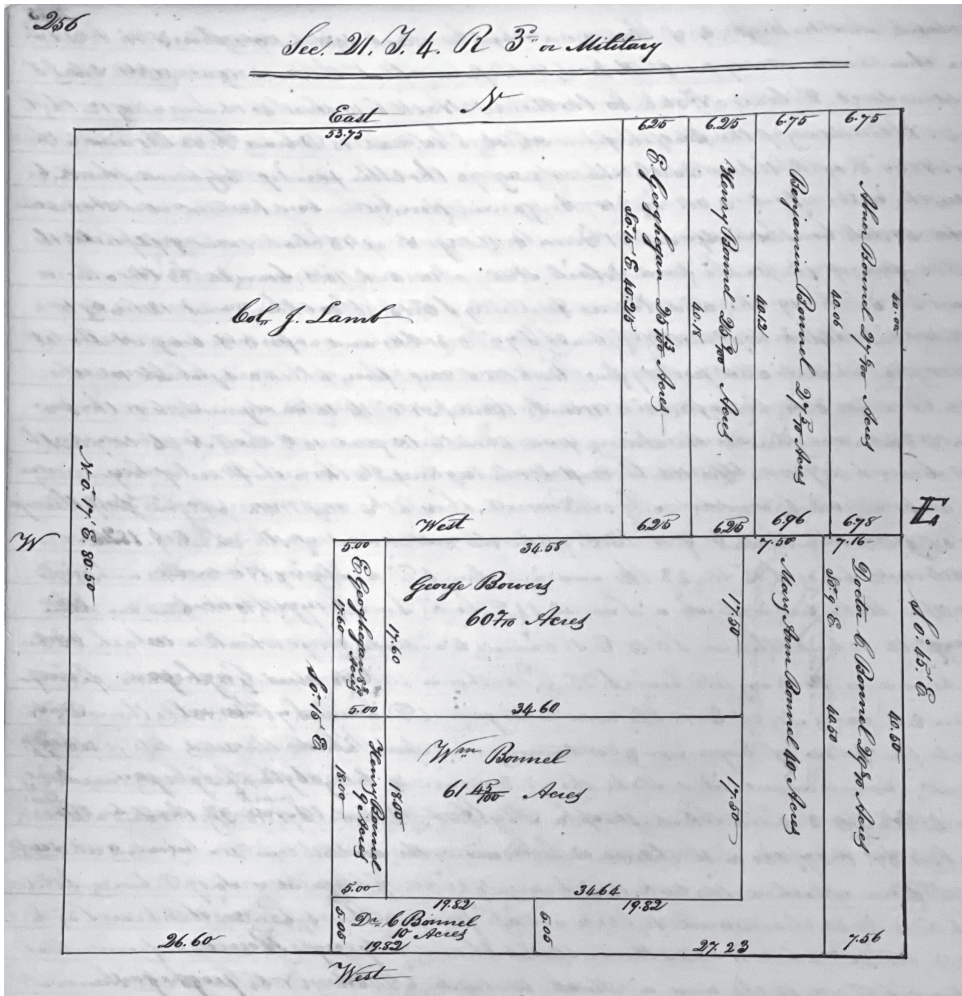 256
Sec. 21. T. 4. R 3d or Military
N
East
53.75
6.25
6.25
6.75
6.75
Coln J. Lamb
E. Geoghegan 25 13/100 Acres
So. 15 E. 40.25
Henry Bonnel 25 Acres
40.18
Benjamin Bonnel 27 Acres
40.12
Bonnel 27 Acres
40.06
W
N 0° 17' E. 80.50
West
6.25
6.25
6.96
6.78
E.
S. 0. 15. E
5.00
34.58
7.50
7.16
E. Geoghegan
Acres
17.60
17.60
George Bowers
60 7/10 Acres
17.50
34.60
5.00
So. 15 E
Henry Bonnel
9 Acres
18.00
18.00
Wm Bonnel
61 45/100 Acres
17.50
5.00
34.64
Mary Ann Bonnel 40 Acres
Doctor C. Bonnel 29 Acres
40.50
40.50
5.05
19.82
19.82
Dr. C Bonnel
10 Acres
19.82
5.05
26.60
27.23
7.56
West